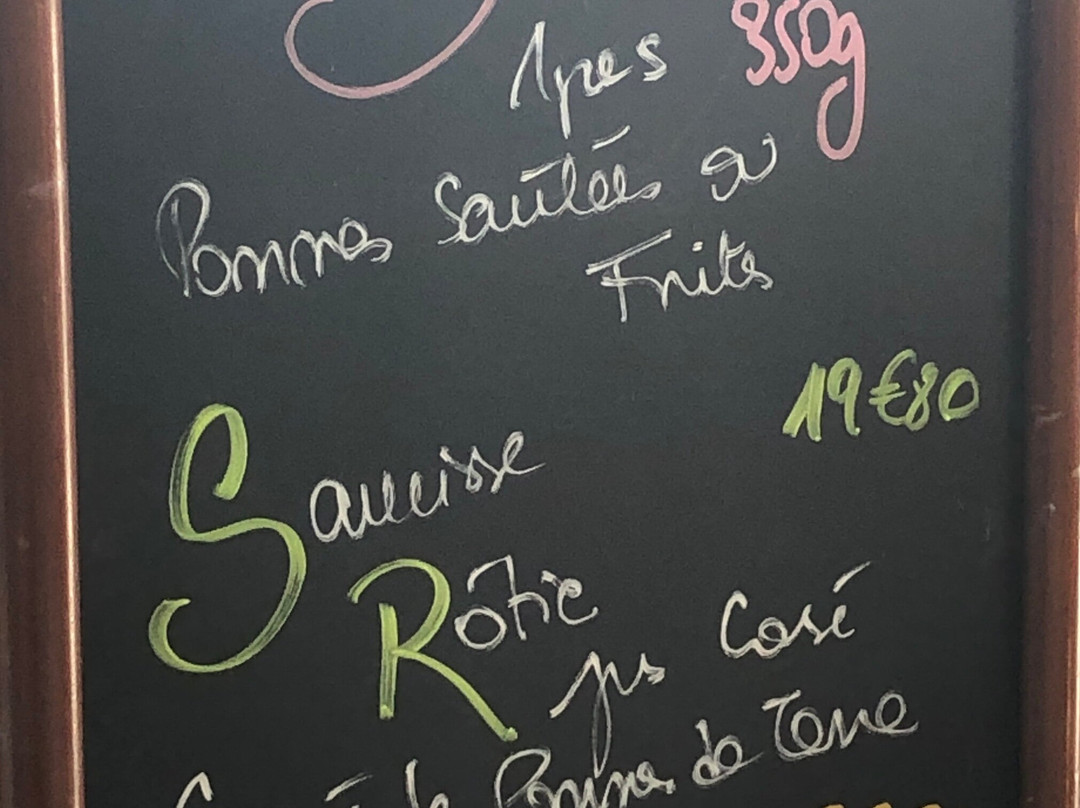 1pers 350g
Pommes Sautées ou
Frites
19€80
Saucisse
Rôtie
jus Corsé
de Pommes de Terre